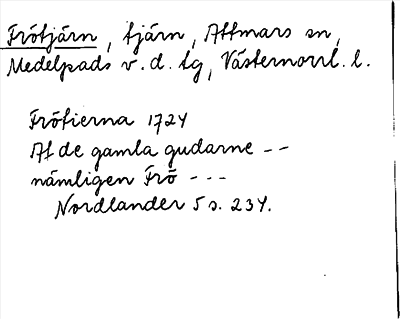 Frötjärn, tjärn, Attmars sn,
Medelpads v. d. tg, Västernorrl. l.
Frötierna 1724
Af de gamla gudarne --
nämligen Frö ---
Nordlander 5 s. 234.